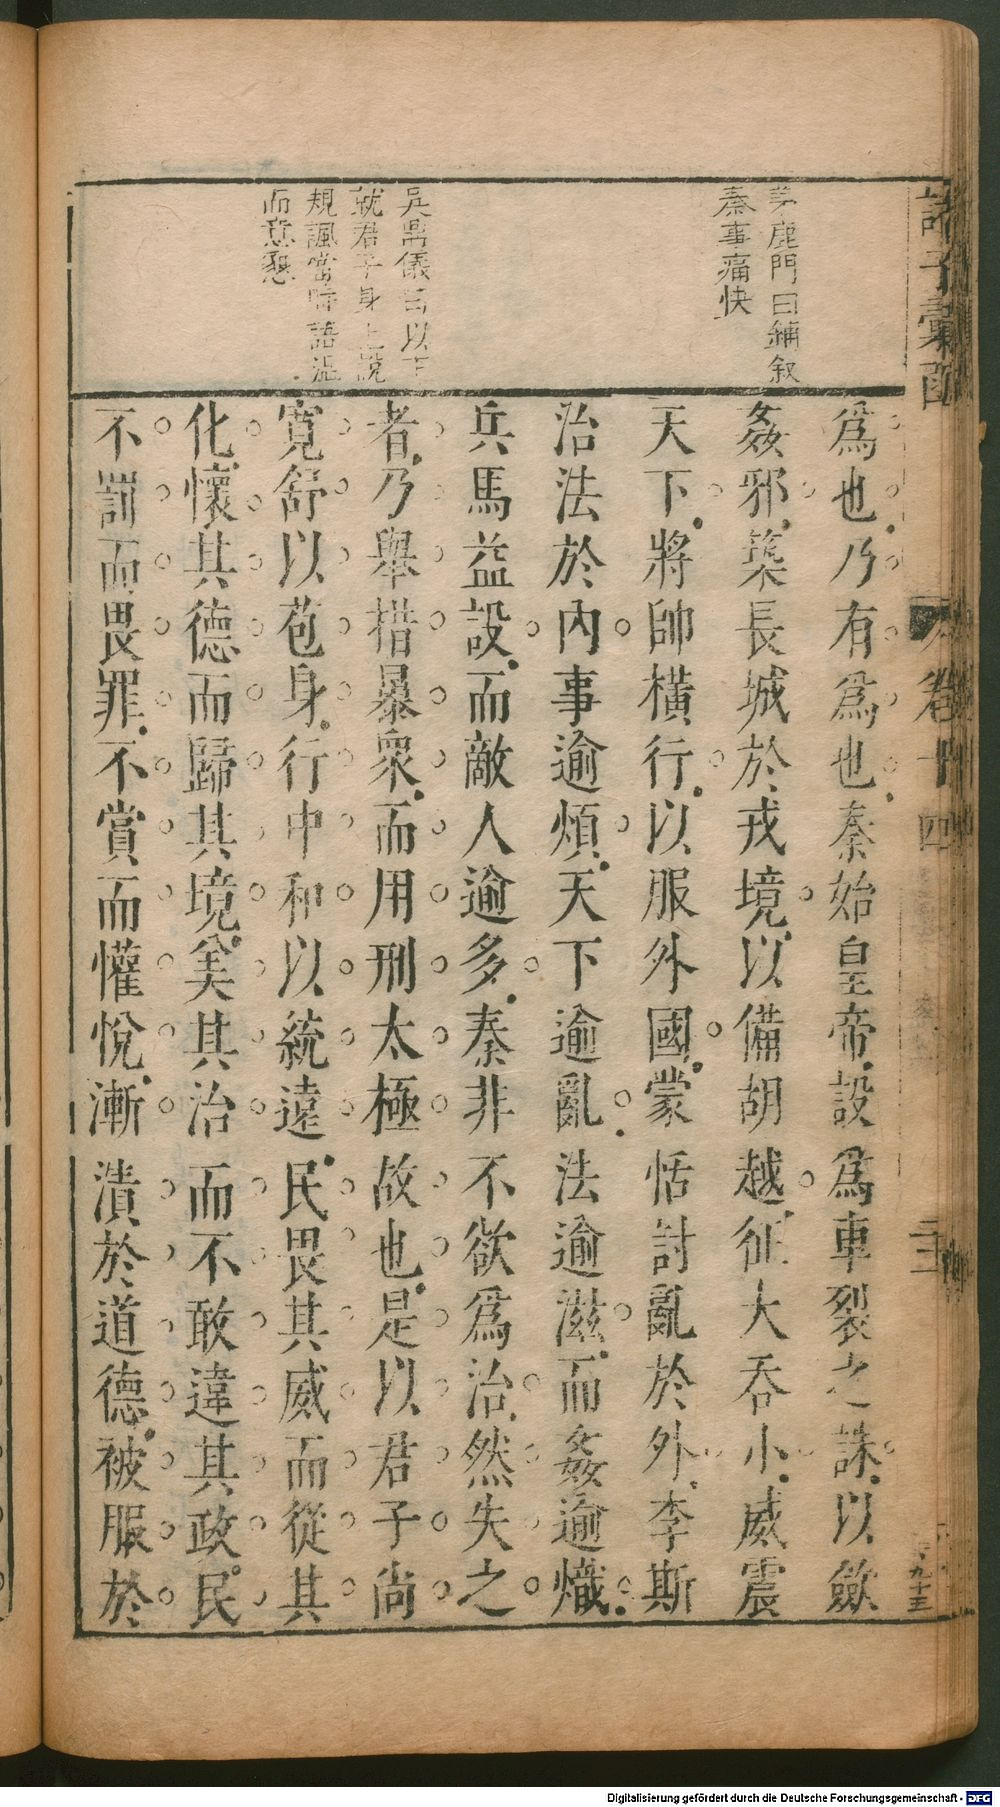 諸子彙函
卷十四
二十二
九十三
茅鹿門曰鋪叙
秦事痛快
吳禺儀曰以下
就君子身上說
規諷當時語溫
而意懇
爲也乃有爲也秦始皇帝設爲車裂之誅以斂
姦邪築長城於戎境以備胡越征大吞小威震
天下將帥橫行以服外國蒙恬討亂於外李斯
治法於內事逾煩天下逾亂法逾滋而姦逾熾
兵馬益設而敵人逾多秦非不欲爲治然失之
者乃舉措暴衆而用刑太極故也是以君子尚
寬舒以苞身行中和以統遠民畏其威而從其
化懷其德而歸其境美其治而不敢違其政民
不罰而畏罪不賞而懽悅漸漬於道德被服於
Digitalisierung gefördert durch die Deutsche Forschungsgemeinschaft - DFG